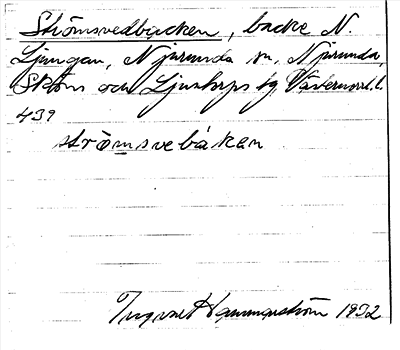 Strömsvedbacken, backe N.
Ljungan, Njurunda sn, Njurunda,
Sköns och Ljustorps tg, Västernorrl. l.
439
strömsvebáken
Ingvar Hammarström 1932